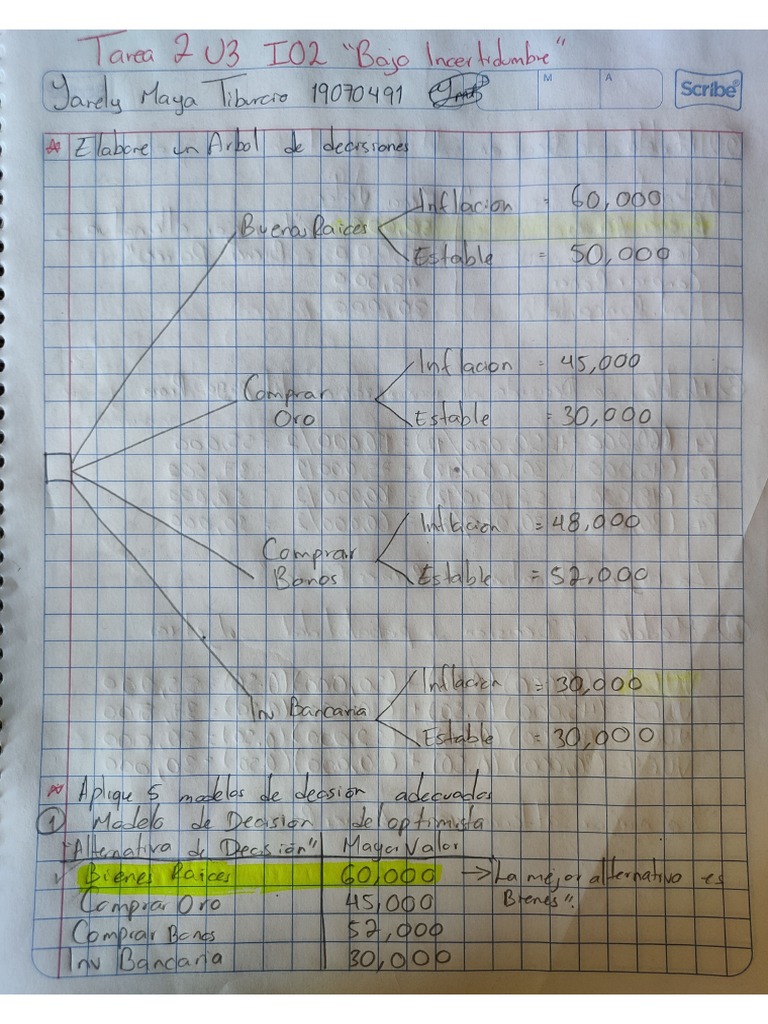 Tarea 2 U3 IO2 "Bajo Incertidumbre"
Yarely Maya Tiburcio 19070491
M A Scribe
Elabore un Arbol de decisiones
Inflacion = 60,000
Buenas Raices
Estable = 50,000
Inflacion = 45,000
Comprar
Oro
Estable = 30,000
Inflacion = 48,000
Comprar
Bonos
Estable = 52,000
Inflacion = 30,000
Inv Bancaria
Estable = 30,000
Aplique 5 modelos de decision adecuados
1 Modelo de Decision del optimista
"Alternativa de Decisión" Mayor Valor
Bienes Raices 60,000 → "La mejor alternativa es
Bienes".
Comprar Oro 45,000
Comprar Bonos 52,000
Inv Bancaria 30,000